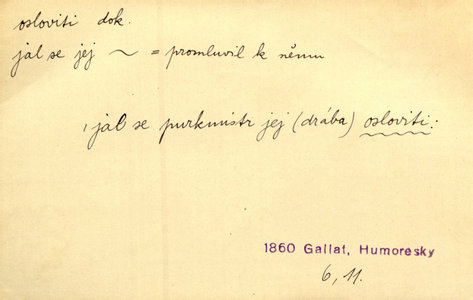 osloviti dok.
jal se jej ~ = promluvil k němu
jal se purkmistr jej (drába) osloviti:
1860 Gallat, Humoresky
6, 11.